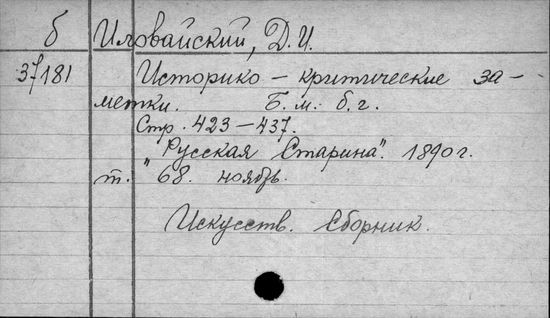 б Иловайский, Д.И.
37181 Историко - критические за-
метки. Б.м. б.г.
Стр. 423-437.
"Русская Старина". 1890 г.
т. 68. ноябрь.
Искусств. Сборник.